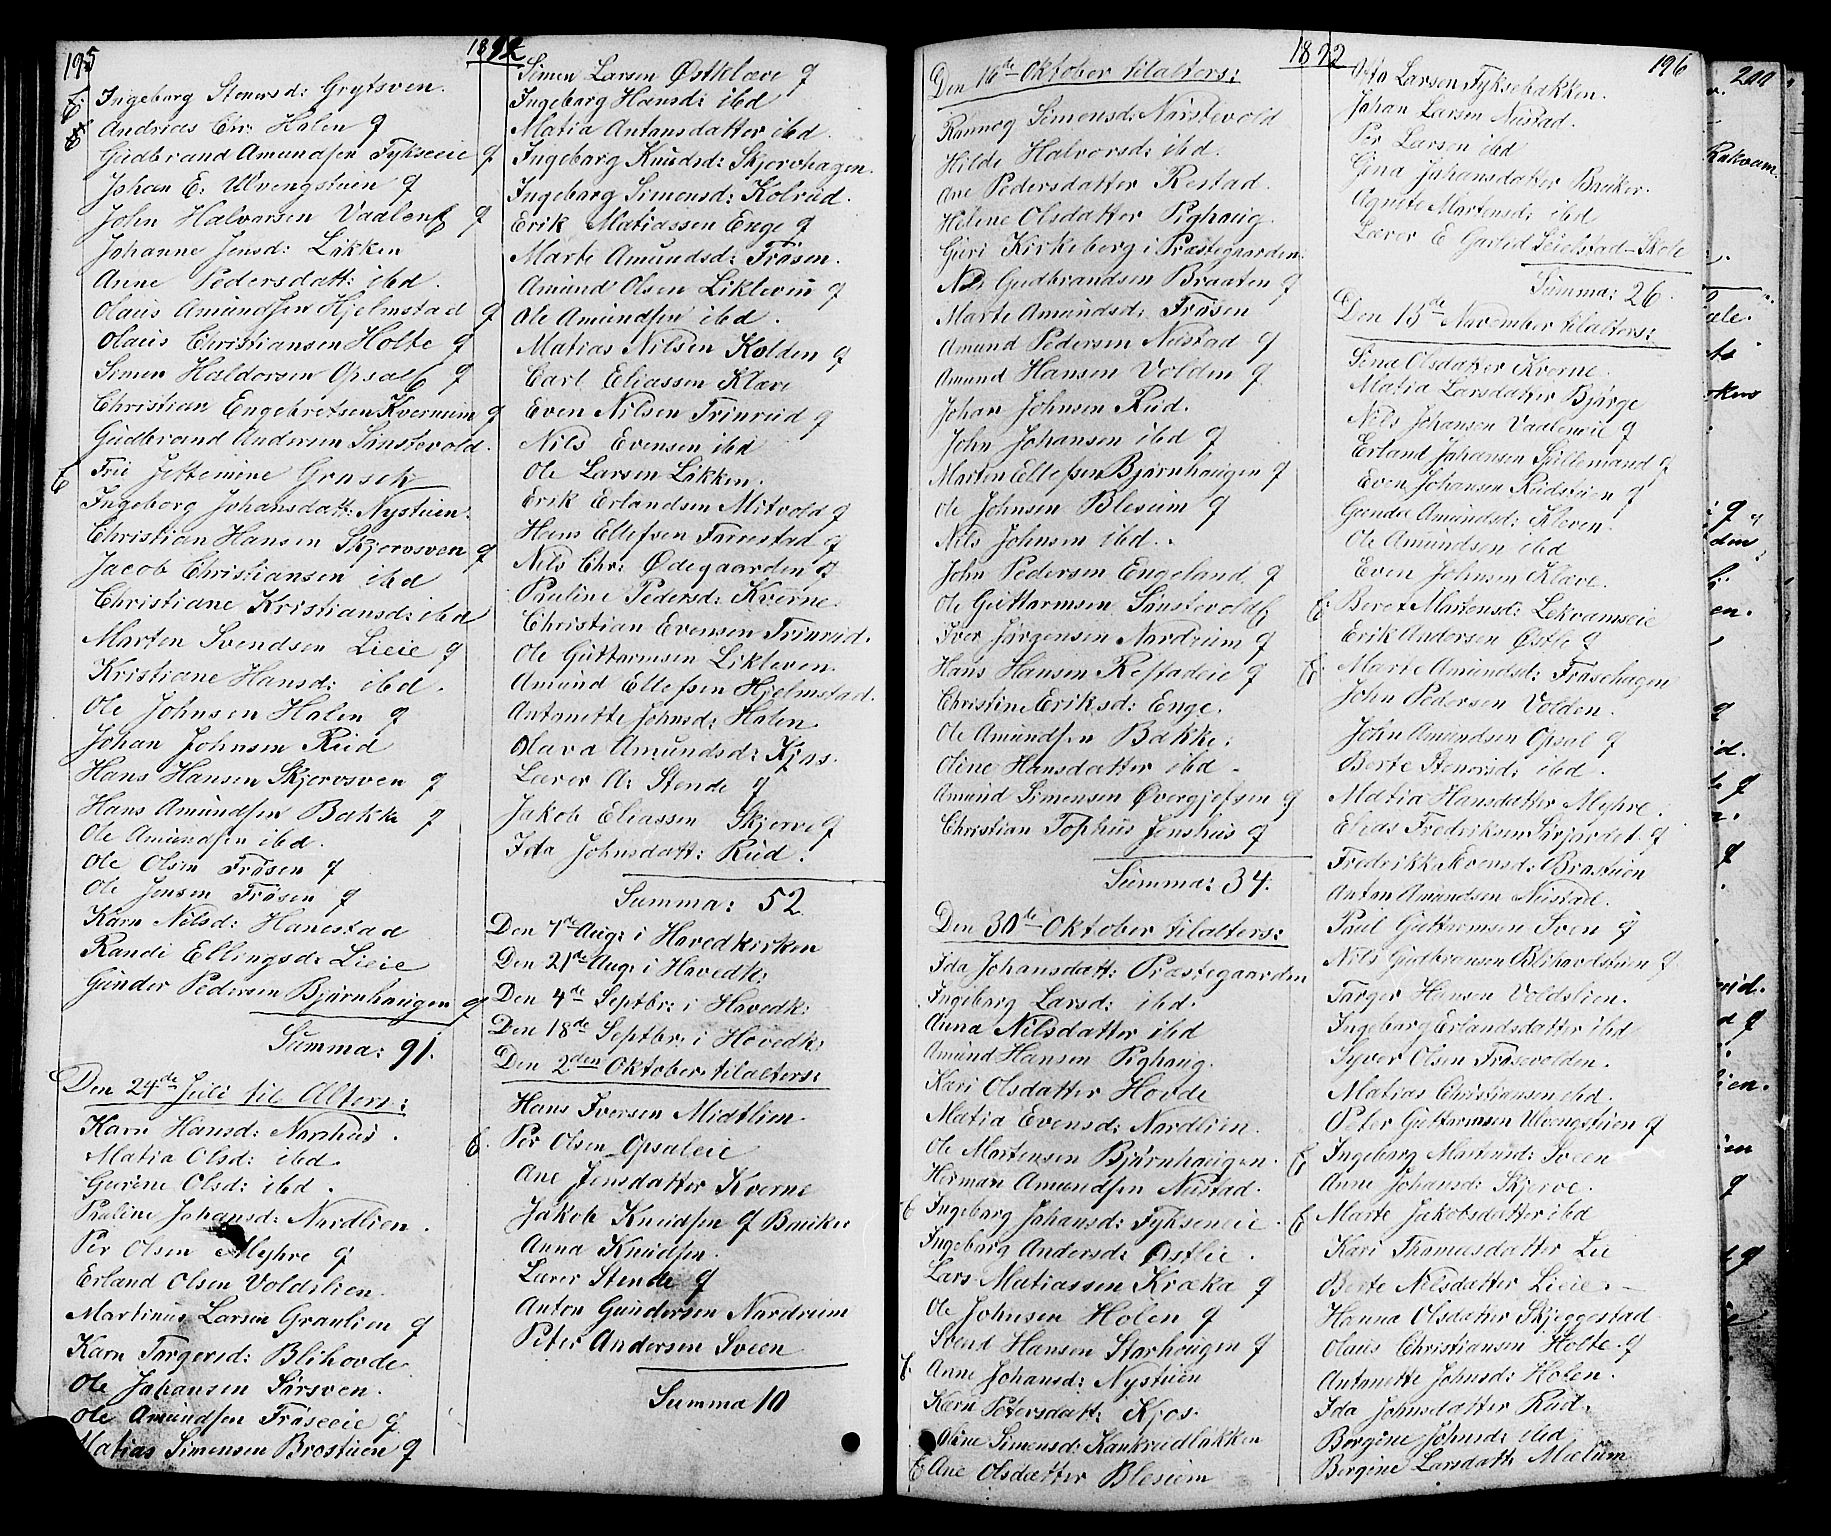 195
1892
Ingeborg Stenersd: Grytsven.
Andrias Chr: Holen q
Gudbrand Amundsen Fykseeie q
Johan E: Ulvengstuen q
John Halvorsen Vaalen q
Johanne Jensd: Løkken
Anne Pedersdatt: ibd.
Olaus Amundsen Hjelmstad q
Olaus Christiansen Holte q
Simen Haldorsen Opsal q
Christian Engebretsen Kvernum q
Gudbrand Andersen Sønstevold.
Frü Jettemine
Ingeborg Johansdatt: Nystuen.
Christian Hansen Skjerosven q
Jacob Christiansen ibd
Christiane Kristiansd: ibd
Marten Svendsen Lieie q
Kristiane Hansd: ibd.
Ole Johnsen Holen q
Johan Johnsen Rud
Hans Hansen Skjerosven q
Hans Amundsen Bakke q
Ole Amundsen ibd.
Ole Olsen Frøsen q
Ole Jensen Frøsen q
Karn Nilsd: Hanestad
Randi Ellingsd: Lieie
Gunder Pedersen Bjørnhaugen q
Summa: 91.
Den 24de Juli til Alters:
Karn Hansd: Narshus.
Matia Olsd: ibd.
Gurine Olsd: ibd.
Pauline Johansd: Nordlien.
Per Olsen Myhre q
Erland Olsen Voldslien.
Martinus Larsen Graulien q
Karn Torgersd: Blihovde
Ole Johansen Sørsven.
Ole Amundsen Frøseeie q
Matias Simensen Brostuen q
Simen Larsen Østklæve q
Ingeborg Hansd: ibd
Matia Antonsdatter ibd.
Ingeborg Knudsd: Skjervhagen.
Ingeborg Simensd: Kolrud.
Erik Matiassen Enge q
Marte Amundsd: Frøsen.
Amund Olsen Likteven q
Ole Amundsen ibd.
Matias Nilsen Kolden q
Carl Eliassen Klæve
Even Nilsen Trinrud q
Nils Evensen ibd
Ole Larsen Løkken.
Erik Erlandsen Mitvold q
Hans Ellefsen Farrestad q
Nils Chr: Ødegaarden q
Pauline Pedersd: Kverne
Christian Evensen Trinrud.
Ole Guttormsen Likteven.
Amund Ellefsen Hjelmstad.
Antonette Johnsd: Holen
Olava Amundsd: Kjos.
Lærer A: Stende q
Jakob Eliassen Skjerve q
Ida Johnsdatt: Rud.
Summa: 52
Den 7de Aug: i Hovedkirken
Den 21de Aug: i Hovedk:
Den 4de Septbr: i Hovedk:
Den 18de Septbr: i Hovedk:
Den 2den Oktober tilalters:
Hans Iversen Midtlien.
Per Olsen Opsaleie
Ane Jensdatter Kverne
Jakob Knudsen q Bruker
Anna Knudsen.
Lærer Stende q
Anton Gundersen Nordrum
Peter Andersen Sveen
Summa 10
1892
196
Den 16de Oktober tilalters:
Rannog Simensd: Nørstevold
Hilde Halvorsd: ibd.
Ane Pedersdatter Restad.
Helene Olsdatter Pighaug
Guri Kirkeberg i Præstegaarden
Nils Gudbrandsen Braaten q
Marte Amundsd: Frøsen
Amund Pedersen Nustad q
Amund Hansen Volden q
Johan Johnsen Rud.
John Johansen ibd q
Marten Ellefsen Bjørnhaugen q
Ole Johnsen Blesum q
Nils Johnsen ibd.
John Pedersen Engeland q
Ole Guttormsen Sønstevold
Iver Jørgensen Nordrum q
Hans Hansen Restadeie q
Christine Eriksd: Enge.
Ole Amundsen Bakke.
Oline Hansdatter ibd.
Amund Simensen Øvergjefsen q
Christian Tophus Jenshus q
Summa: 34.
Den 30de Oktober tilalters:
Ida Johansdatt: Præstegaarden
Ingeborg Larsd: ibd.
Anna Nilsdatter ibd
Amund Hansen Pighaug.
Kari Olsdatter Hovde
Matia Evensd: Nordlien.
Ole Martensen Bjørnhaugen.
Herman Amundsen Nustad.
Ingeborg Johansd: Fykseneie.
Ingeborg Andersd: Østlie.
Lars Matiassen Kræka q
Ole Johnsen Holen q
Svend Hansen Starhougen q
Anne Johansd: Nystuen
Karn Petersdatt: Kjos.
Oline Simensd: Kankrudløkken
Ane Olsdatter Blesum
Ola Larsen Fyksebakken.
Johan Larsen Nustad.
Per Larsen ibd
Gina Johansdatter Bruker.
Agnete Martensd: ibd
Lærer E Gartid Seielstad-Skole
Summa: 26.
Den 13de November tilalters:
Sina Olsdatter Kverne.
Matia Larsdatter Bjørge
Nils Johansen Vaaleneie q
Erland Johansen Spillemand q
Even Johansen Rudstuen q
Gunda Amundsd: Kleven.
Ole Amundsen ibd
Even Johnsen Klæve.
Beret Martensd: Lekvamseie
Erik Andersen Østli q
Marte Amundsd: Frøsehagen
John Pedersen Volden.
John Amundsen Opsal q
Berte Stenersd: ibd.
Matia Hansdatter Myhre.
Elias Fredriksen Sørjordet q
Fredrikke Evensd: Brostuen
Anton Amundsen Nustad.
Paul Guttormsen Sven q
Nils Gudbransen Blihovdstuen q
Torger Hansen Voldslien.
Ingeborg Erlandsdatter ibd
Syver Olsen Frøsevolden.
Matias Christiansen ibd.
Peter Guttormsen Ulvengstuen q
Ingeborg Martensd: Sveen
Anne Johansd: Skjerve.
Marte Jakobsdatter ibd
Kari Thomasdatter Lie
Berte Nilsdatter Lieie.
Hanna Olsdatter Skjeggestad
Olaus Christiansen Holte. q
Antonette Johnsd: Holen.
Ida Johnsdatter Rud.
Bergine Johnsd: ibd
Bergine Larsdatt: Mælum
200
Rakvam.